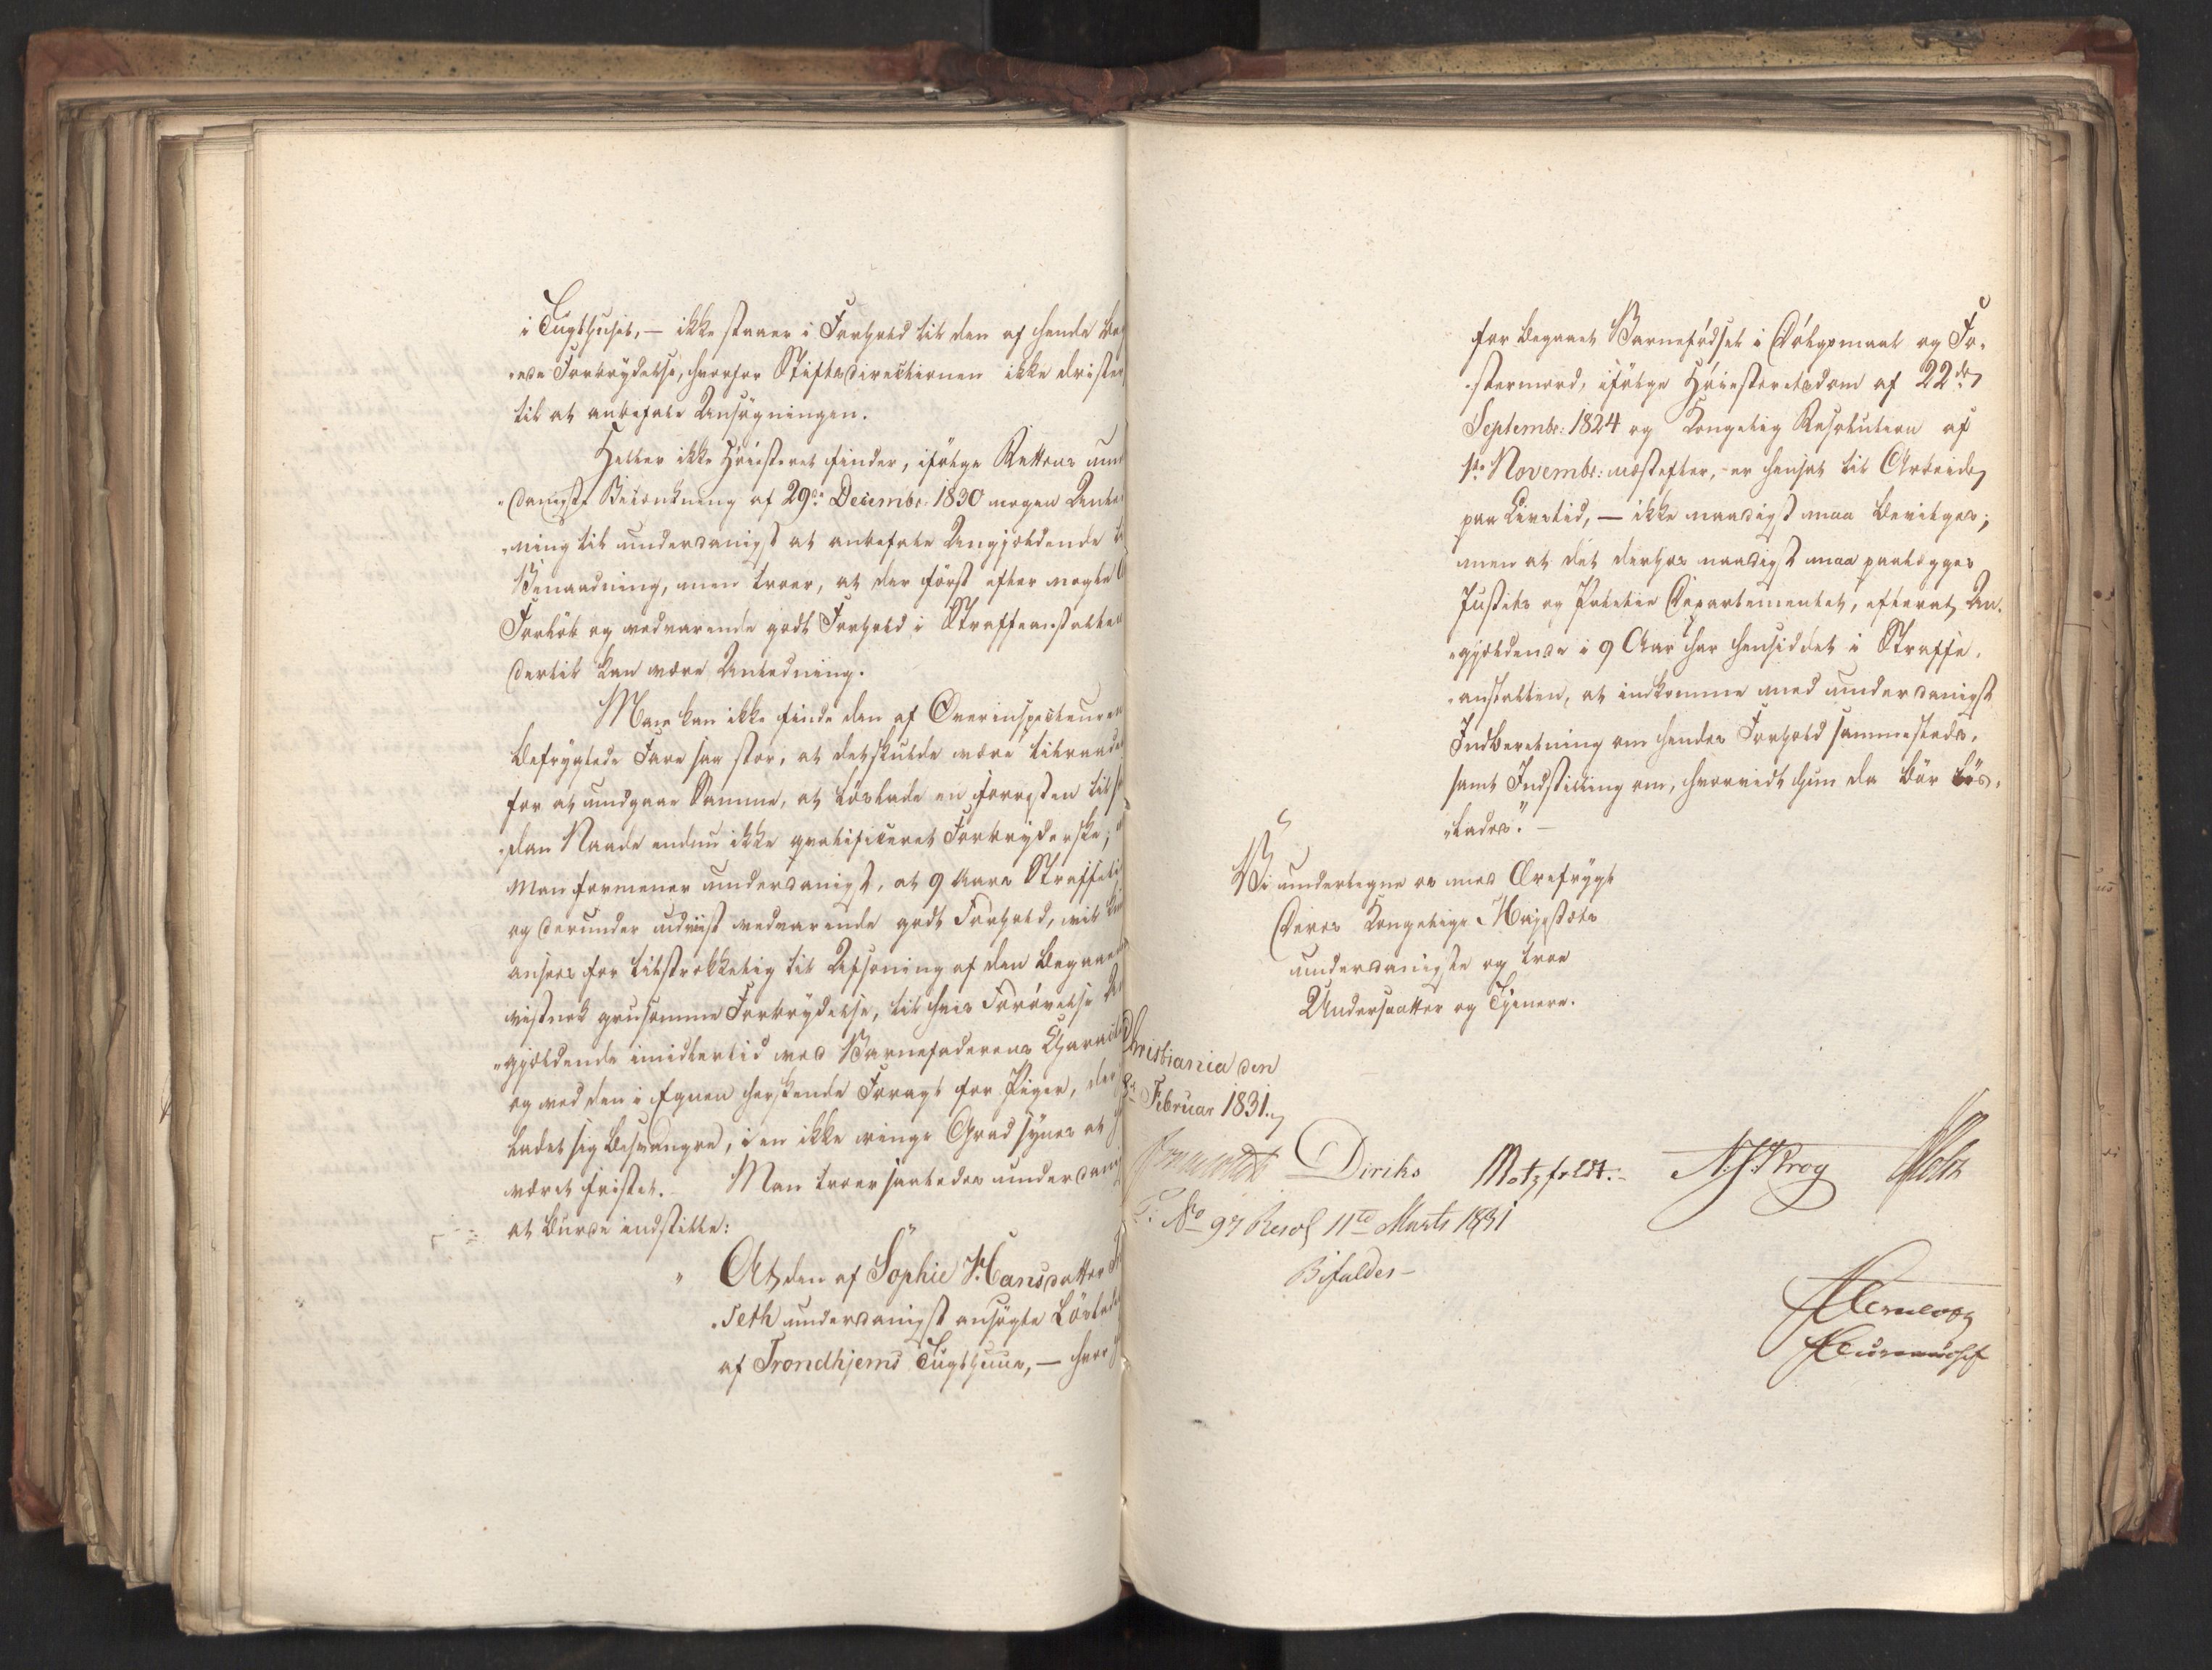 i Tugthuset, — ikke staaer i Forhold til den af hende be-
„ede Forbrydelse, hvorfor Stiftsdirectionen ikke drister
til at anbefale Ansøgningen.
Heller ikke Høiesteret finder, ifølge Rettens un-
„danigste Betænkning af 29de Decembr: 1830 nogen Anled-
„ning til underdanigst at anbefale Angjældende
Benaadning, men troer, at der først efter nogle
Forløb og vedvarende godt Forhold i Straffeanstalten
dertil kan være Anledning.
Man kan ikke finde den af Overinspecteuren
befrygtede Fare saa stor, at det skulde være tilraadel
for at undgaae Samme, at løslade en forresten til
„dan Naade endnu ikke qvalificeret Forbryderske;
Man formener underdanigst, at 9 Aars Straffeti
og derunder udviist vedvarende godt Forhold, vil
ansees for tilstrækkelig til Afsoning af den begaaed
vistnok grusomme Forbrydelse, til hvis Forøvelse
„gjældende imidlertid ved Barnefaderens Charact
og ved den i Egnen herskende Foragt for Piger, der
ladet sig besvangre, i en ikke ringe Grad synes at
været fristet. Man troer saaledes underdanig
at burde indstille:
„At den af Sophie Hansdatter
„seth underdanigst ansøgte Løslade
af Trondhjems Tugthuus, — hvor
for begaaet Barnefødsel i Dølgsmaal og Fo-
„stermord, ifølge Høiesteretsdom af 22de
Septembr: 1824 og Kongelig Resolution af
1ste Novembr: næstefter, er hensat til Arbeide
paa Livstid, — ikke naadigst maa bevilges;
men at det derhos naadigst maa paalægges
Justits og Politie Departementet, efterat An-
„gjældende i 9 Aar har hensiddet i Straffe-
„anstalten, at indkomme med underdanigst
Indberetning om hendes Forhold sammesteds,
samt Indstilling om, hvorvidt hun da bør løs-
„lades." —
Vi undertegne os med Ærefrygt
Deres Kongelige Majestæts
underdanigste og troe
Undersaatter og Tjenere.
Christiania den
8de Februar 1831.
Diriks Motzfeldt. Krog Holst
No 97 Resol 11te Marts 1831
Bifaldes —